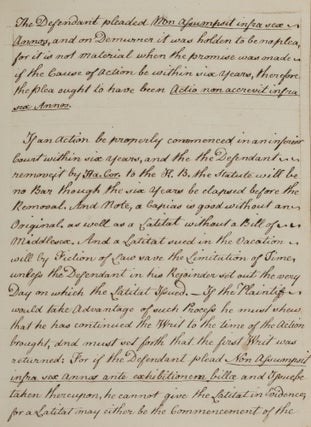 The Defendant pleaded Non Assumpsit infra sex
Annos, and on Demurrer it was holden to be no plea,
for it is not material when the promise was made
if the Cause of Action be within six Years, therefore
the Plea ought to have been Actio non accrevit infra
sex Annos.
If an Action be properly commenced in an inferior
Court within six Years, and the the Defendant
remove it by Ha. Cor. to the K. B. the Statute will be
no Bar though the six Years be elapsed before the
Removal. And Note, a Capias is good without an
Original, as well as a Latitat without a Bill of
Middlesex. And a Latitat sued in the Vacation
will by Fiction of Law save the Limitation of Time,
unless the Defendant in his Rejoinder set out the very
Day on which the Latitat Issued. If the Plaintiff
would take Advantage of such Process he must shew,
that he has continued the Writ to the time of the Action
brought, and must set forth that the first Writ was
returned: For if the Defendant plead Non Assumpsit
infra sex Annos ante exhibitionem billæ and Issue be
taken thereupon, he cannot give the Latitat in Evidence,
for a Latitat may either be the Commencement of the